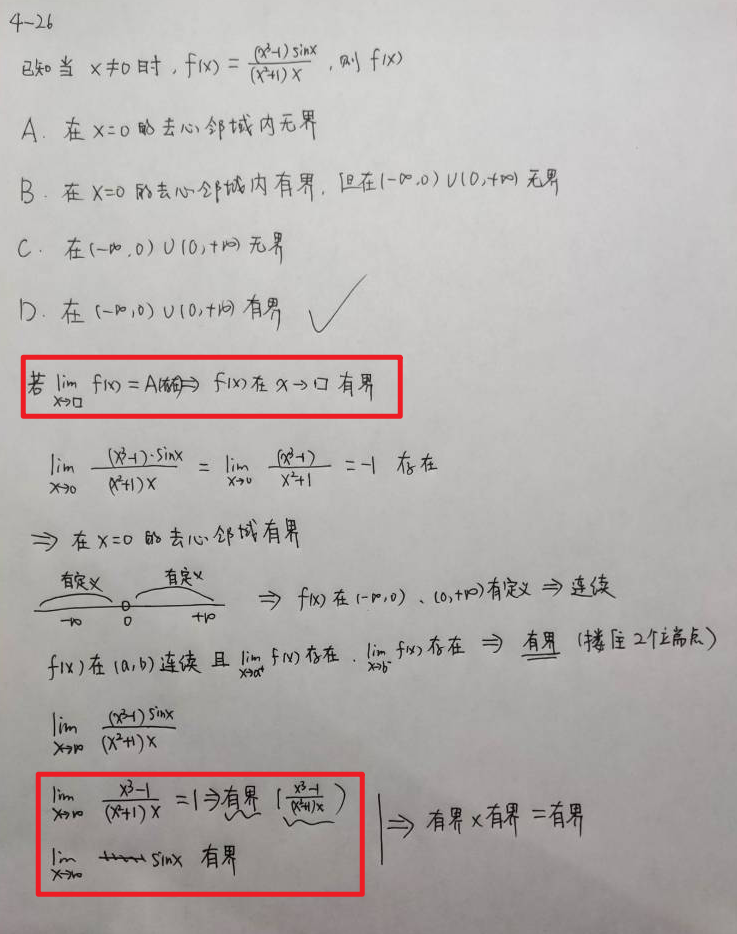 4-26
已知当 x≠0时, f(x) = (x³-1) sinx / (x²+1) x , 则 f(x)
A. 在 x=0 的去心邻域内无界
B. 在 x=0 的去心邻域内有界, 但在(-∞,0)∪(0,+∞) 无界
C. 在(-∞,0)∪(0,+∞) 无界
D. 在 (-∞,0)∪(0,+∞) 有界 ✓
若 lim x→□ f(x) = A(存在) ⇒ f(x) 在 x→□ 有界
lim x→0 (x³-1)·sinx / (x²+1) x = lim x→0 (x³-1) / x²+1 = -1 存在
⇒ 在 x=0 的去心邻域有界
有定义 有定义
-∞ 0 +∞ ⇒ f(x) 在 (-∞,0)、(0,+∞)有定义 ⇒ 连续
f(x) 在 (a,b) 连续 且 lim x→a⁺ f(x) 存在. lim x→b⁻ f(x) 存在 ⇒ 有界 (搂住2个端点)
lim x→∞ (x³-1) sinx / (x²+1) x
lim x→∞ x³-1 / (x²+1) x = 1 ⇒ 有界 ( x³-1 / (x²+1)x )
lim x→∞ sinx 有界
⇒ 有界 × 有界 = 有界